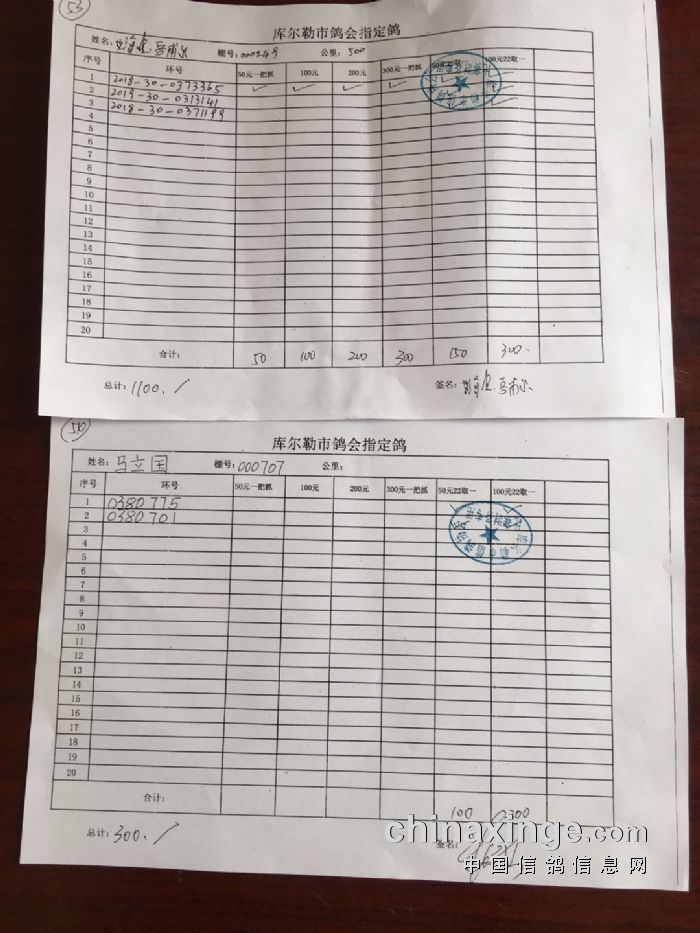 53
库尔勒市鸽会指定鸽
姓名: 棚号:000249 公里:500
序号 环号 50元一把抓 100元 200元 300元一把抓 50元22取一 100元22取一
1 2018-30-0373365
2 2019-30-0313141 ✓ ✓ ✓ ✓
3 2018-30-0371199
4
5
6
7
8
9
10
11
12
13
14
15
16
17
18
19
20
合计: 50 100 200 300 150 300.
总计:1100. 签名:
库尔勒市鸽会指定鸽
姓名:马立国 棚号:000707 公里:
序号 环号 50元一把抓 100元 200元 300元一把抓 50元22取一 100元22取一
1 0380775
2 0380701
3
4
5
6
7
8
9
10
11
12
13
14
15
16
17
18
19
20
合计: 100
总计:300. 签名:
chinaxinge.com
中国信鸽信息网